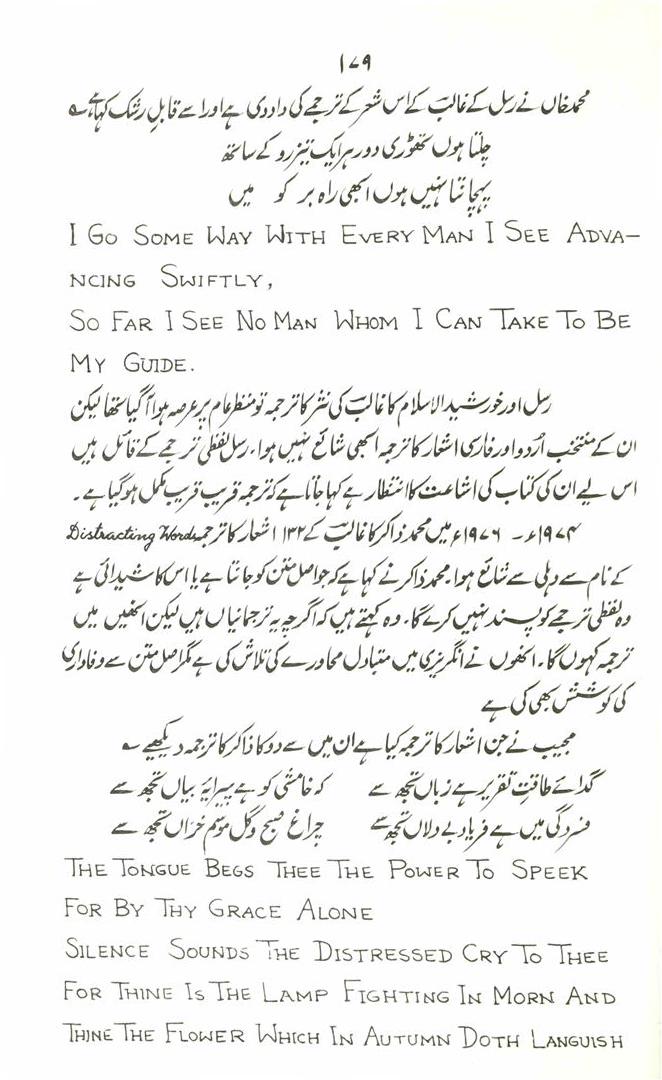 ۱۷۹
محمد خاں نے رسل کے غالبؔ کے اس شعر کے ترجمے کی داد دی ہے اور اسے قابلِ رشک کہا ہے ؎
چلتا ہوں تھوڑی دور ہر ایک تیز رو کے ساتھ
پہچانتا نہیں ہوں ابھی راہ بر کو میں
I GO SOME WAY WITH EVERY MAN I SEE ADVA-
NCING SWIFTLY,
SO FAR I SEE NO MAN WHOM I CAN TAKE TO BE
MY GUIDE.
رسل اور خورشید الاسلام کا غالبؔ کی نثر کا ترجمہ تو منظرِ عام پر عرصہ ہوا آگیا تھا لیکن
ان کے منتخب اُردو اور فارسی اشعار کا ترجمہ ابھی شائع نہیں ہوا۔ رسل لفظی ترجمے کے قائل ہیں
اس لیے ان کی کتاب کی اشاعت کا انتظار ہے کہا جاتا ہے کہ ترجمہ قریب قریب مکمل ہوگیا ہے۔
۱۹۷۴ء - ۱۹۷۶ء میں محمد ذاکر کا غالبؔ کے ۱۳۲ اشعار کا ترجمہ Distracting Words
کے نام سے دہلی سے شائع ہوا۔ محمد ذاکر نے کہا ہے کہ جو اصل متن کو جانتا ہے یا اس کا شیدائی ہے
وہ لفظی ترجمے کو پسند نہیں کرے گا۔ وہ کہتے ہیں کہ اگرچہ یہ ترجمانیاں ہیں لیکن انھیں میں
ترجمہ کہوں گا۔ انھوں نے انگریزی میں متبادل محاورے کی تلاش کی ہے مگر اصل متن سے وفاداری
کی کوشش بھی کی ہے
مجیب نے جن اشعار کا ترجمہ کیا ہے ان میں سے دو کا ذاکر کا ترجمہ دیکھیے ؎
گدائے طاقتِ تقریر ہے زباں تجھ سے کہ خامشی کو ہے پیرایۂ بیاں تجھ سے
فسردگی میں ہے فریادِ بے دلاں تجھ سے چراغِ صبح و گل موسمِ خزاں تجھ سے
THE TONGUE BEGS THEE THE POWER TO SPEEK
FOR BY THY GRACE ALONE
SILENCE SOUNDS THE DISTRESSED CRY TO THEE
FOR THINE IS THE LAMP FIGHTING IN MORN AND
THINE THE FLOWER WHICH IN AUTUMN DOTH LANGUISH